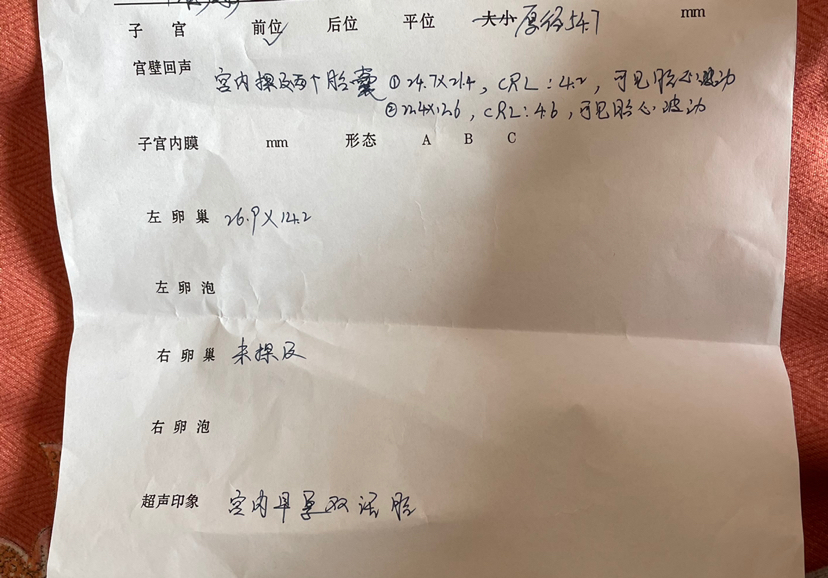 子 宫 前位 ✓ 后位 平位 大小 厚径54.7 mm
官壁回声 宫内探及两个胎囊 ①24.7×21.4, CRL:4.2, 可见胎心波动
②22.4×12.6, CRL:4.6, 可见胎心波动
子宫内膜 mm 形态 A B C
左 卵 巢 26.9×14.2
左 卵 泡
右 卵 巢 未探及
右 卵 泡
超声印象 宫内早孕双活胎